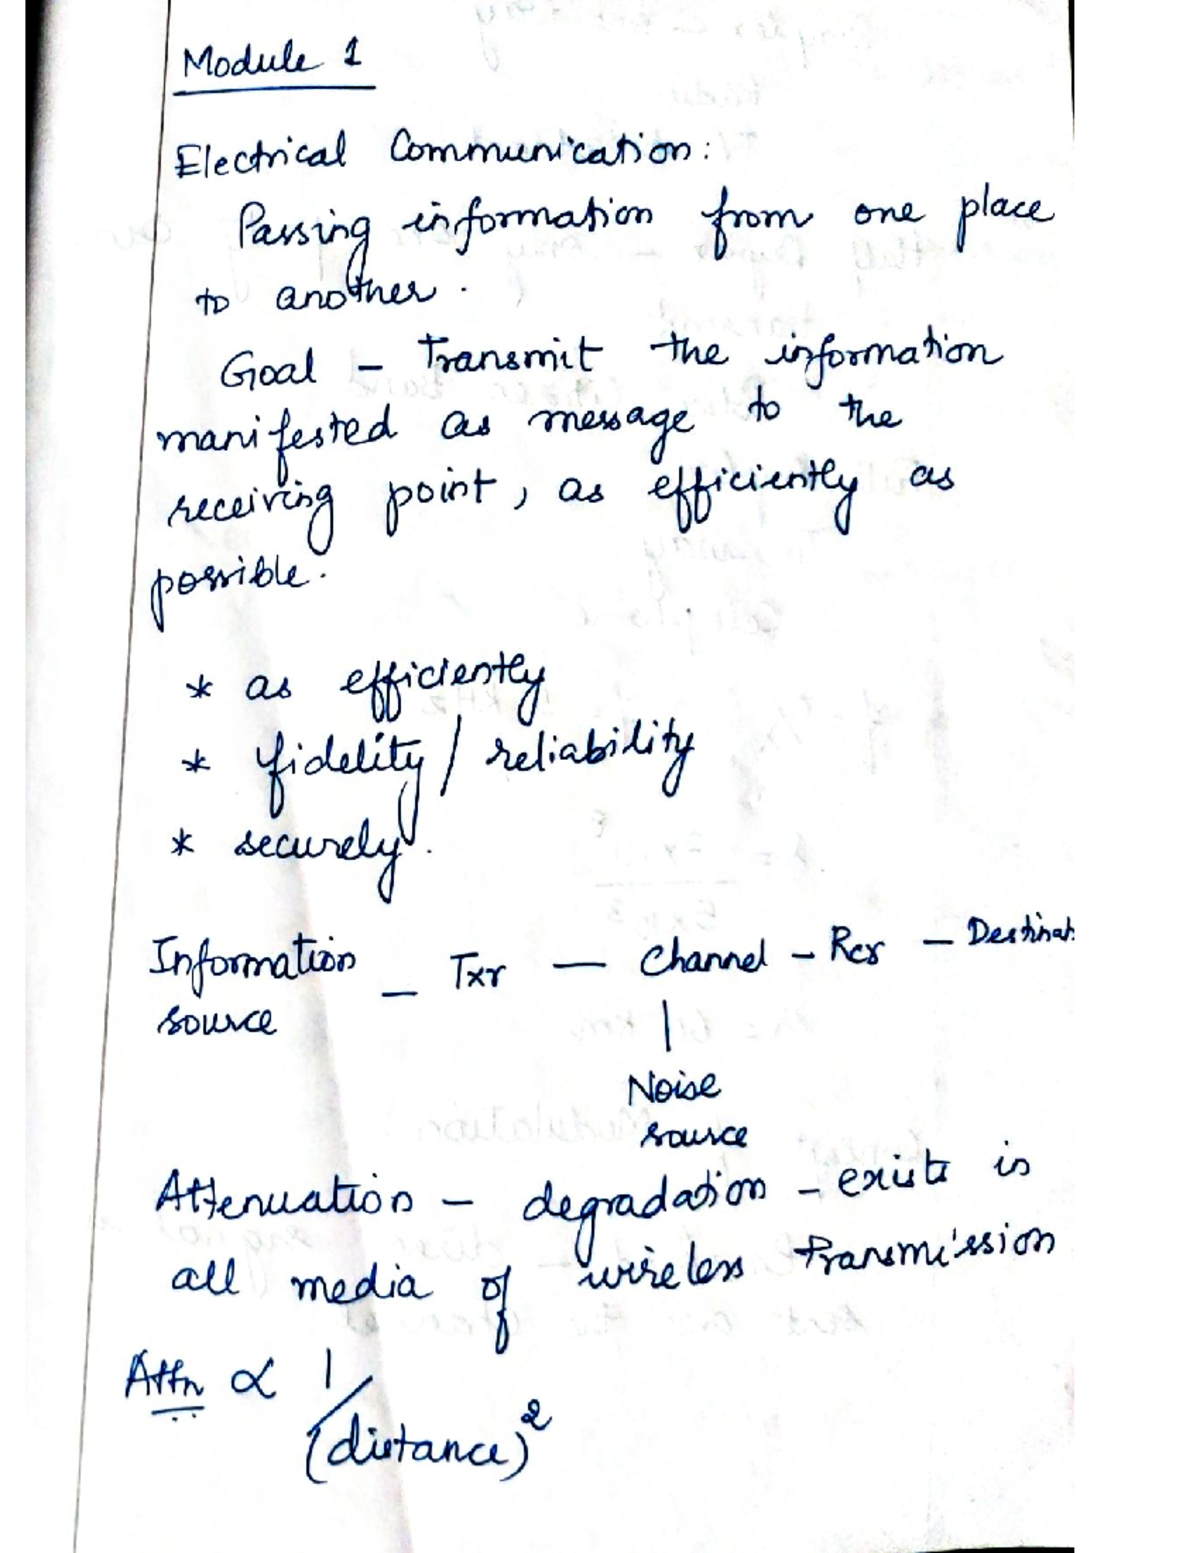 Module 1
Electrical Communication:
Passing information from one place
to another.
Goal - Transmit the information
manifested as message to the
receiving point, as efficiently as
possible.
* as efficiently
* fidelity/reliability
* securely.
Information _ Txr - Channel - Rcr - Destinat
source
Noise
source
Attenuation - degradation - exists in
all media of wireless transmission
Attn ∝ 1/(distance)²